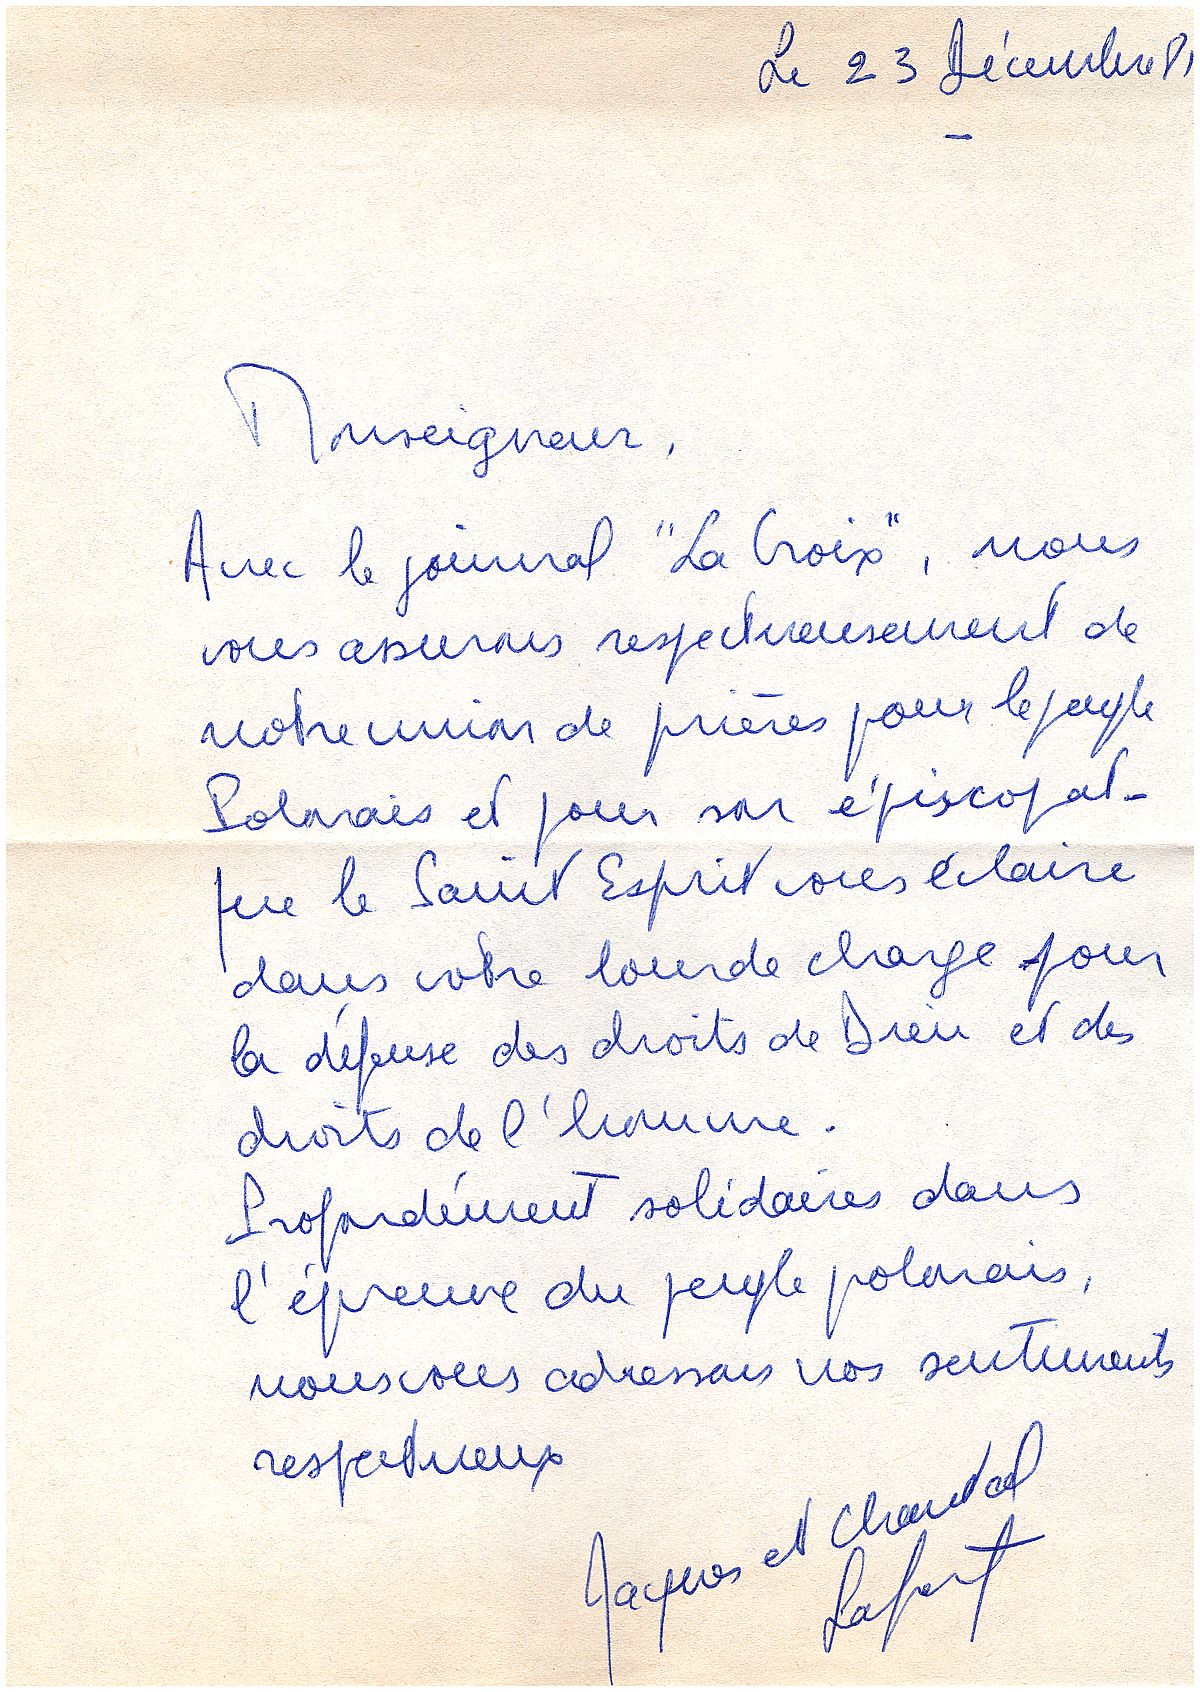 Le 23 Décembre 81
Monseigneur,
Avec le journal "La Croix", nous
vous assurons respectueusement de
notre union de prières pour le peuple
Polonais et pour son épiscopat -
que le Saint Esprit vous éclaire
dans votre lourde charge pour
la défense des droits de Dieu et des
droits de l'homme.
Profondément solidaires dans
l'épreuve du peuple polonais,
nous vous adressons nos sentiments
respectueux
Jacques et Chantal